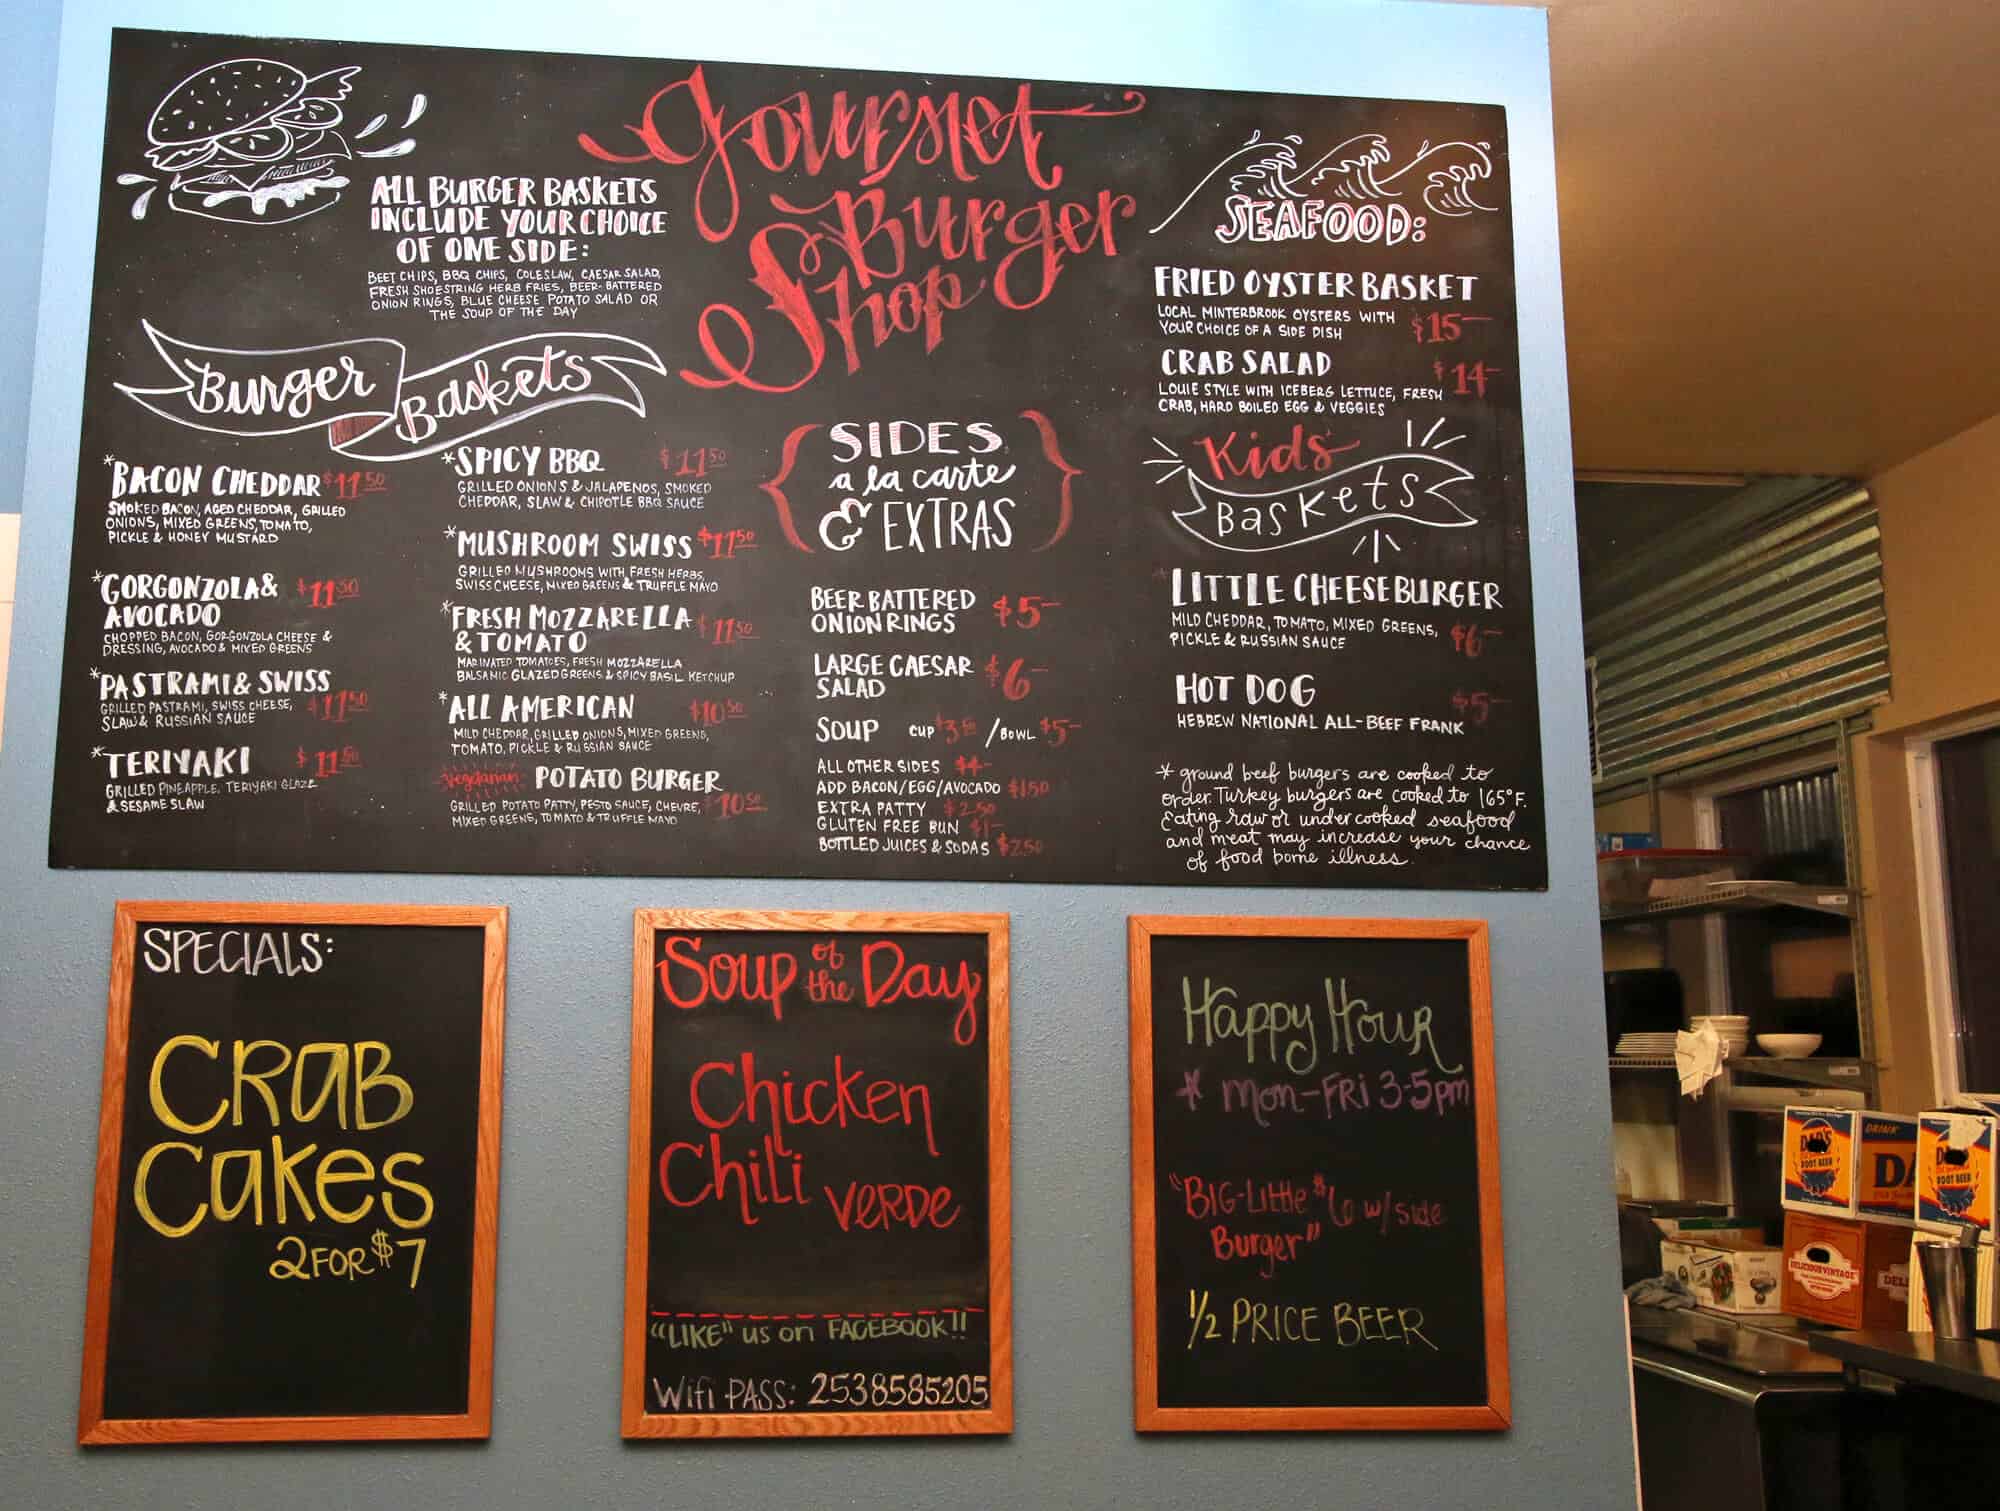 Gourmet
Burger
Shop
ALL BURGER BASKETS
INCLUDE YOUR CHOICE
OF ONE SIDE:
BEET CHIPS, BBQ CHIPS, COLESLAW, CAESAR SALAD,
FRESH SHOESTRING HERB FRIES, BEER-BATTERED
ONION RINGS, BLUE CHEESE POTATO SALAD OR
THE SOUP OF THE DAY
Burger Baskets
*BACON CHEDDAR $11.50
SMOKED BACON, AGED CHEDDAR, GRILLED
ONIONS, MIXED GREENS, TOMATO,
PICKLE & HONEY MUSTARD
*GORGONZOLA & $11.50
AVOCADO
CHOPPED BACON, GORGONZOLA CHEESE &
DRESSING, AVOCADO & MIXED GREENS
*PASTRAMI & SWISS
GRILLED PASTRAMI, SWISS CHEESE, $11.50
SLAW & RUSSIAN SAUCE
*TERIYAKI $11.50
GRILLED PINEAPPLE, TERIYAKI GLAZE
& SESAME SLAW
*SPICY BBQ $11.50
GRILLED ONIONS & JALAPENOS, SMOKED
CHEDDAR, SLAW & CHIPOTLE BBQ SAUCE
*MUSHROOM SWISS $11.50
GRILLED MUSHROOMS WITH FRESH HERBS,
SWISS CHEESE, MIXED GREENS & TRUFFLE MAYO
*FRESH MOZZARELLA $11.50
& TOMATO
MARINATED TOMATOES, FRESH MOZZARELLA
BALSAMIC GLAZED GREENS & SPICY BASIL KETCHUP
*ALL AMERICAN $10.50
MILD CHEDDAR, GRILLED ONIONS, MIXED GREENS,
TOMATO, PICKLE & RUSSIAN SAUCE
Vegetarian POTATO BURGER
GRILLED POTATO PATTY, PESTO SAUCE, CHEVRE, $10.50
MIXED GREENS, TOMATO & TRUFFLE MAYO
SIDES
a la carte
& EXTRAS
BEER BATTERED $5-
ONION RINGS
LARGE CAESAR $6-
SALAD
SOUP CUP $3.50 / BOWL $5-
ALL OTHER SIDES $4-
ADD BACON/EGG/AVOCADO $1.50
EXTRA PATTY $2.50
GLUTEN FREE BUN $1-
BOTTLED JUICES & SODAS $2.50
SEAFOOD:
FRIED OYSTER BASKET
LOCAL MINTERBROOK OYSTERS WITH $15-
YOUR CHOICE OF A SIDE DISH
CRAB SALAD $14-
LOUIE STYLE WITH ICEBERG LETTUCE, FRESH
CRAB, HARD BOILED EGG & VEGGIES
Kids'
Baskets
*LITTLE CHEESEBURGER
MILD CHEDDAR, TOMATO, MIXED GREENS, $6-
PICKLE & RUSSIAN SAUCE
HOT DOG $5-
HEBREW NATIONAL ALL-BEEF FRANK
* ground beef burgers are cooked to
order. Turkey burgers are cooked to 165°F.
Eating raw or undercooked seafood
and meat may increase your chance
of food borne illness.
SPECIALS:
CRAB
CAKES
2 FOR $7
Soup of the Day
Chicken
Chili VERDE
"LIKE" us on FACEBOOK!!
Wifi PASS: 2538585205
Happy Hour
* MON-FRI 3-5pm
"BIG-Little $6 w/ side
Burger"
1/2 PRICE BEER
DAD'S
ROOT BEER
DRINK
ROOT BEER
DELICIOUS VINTAGE